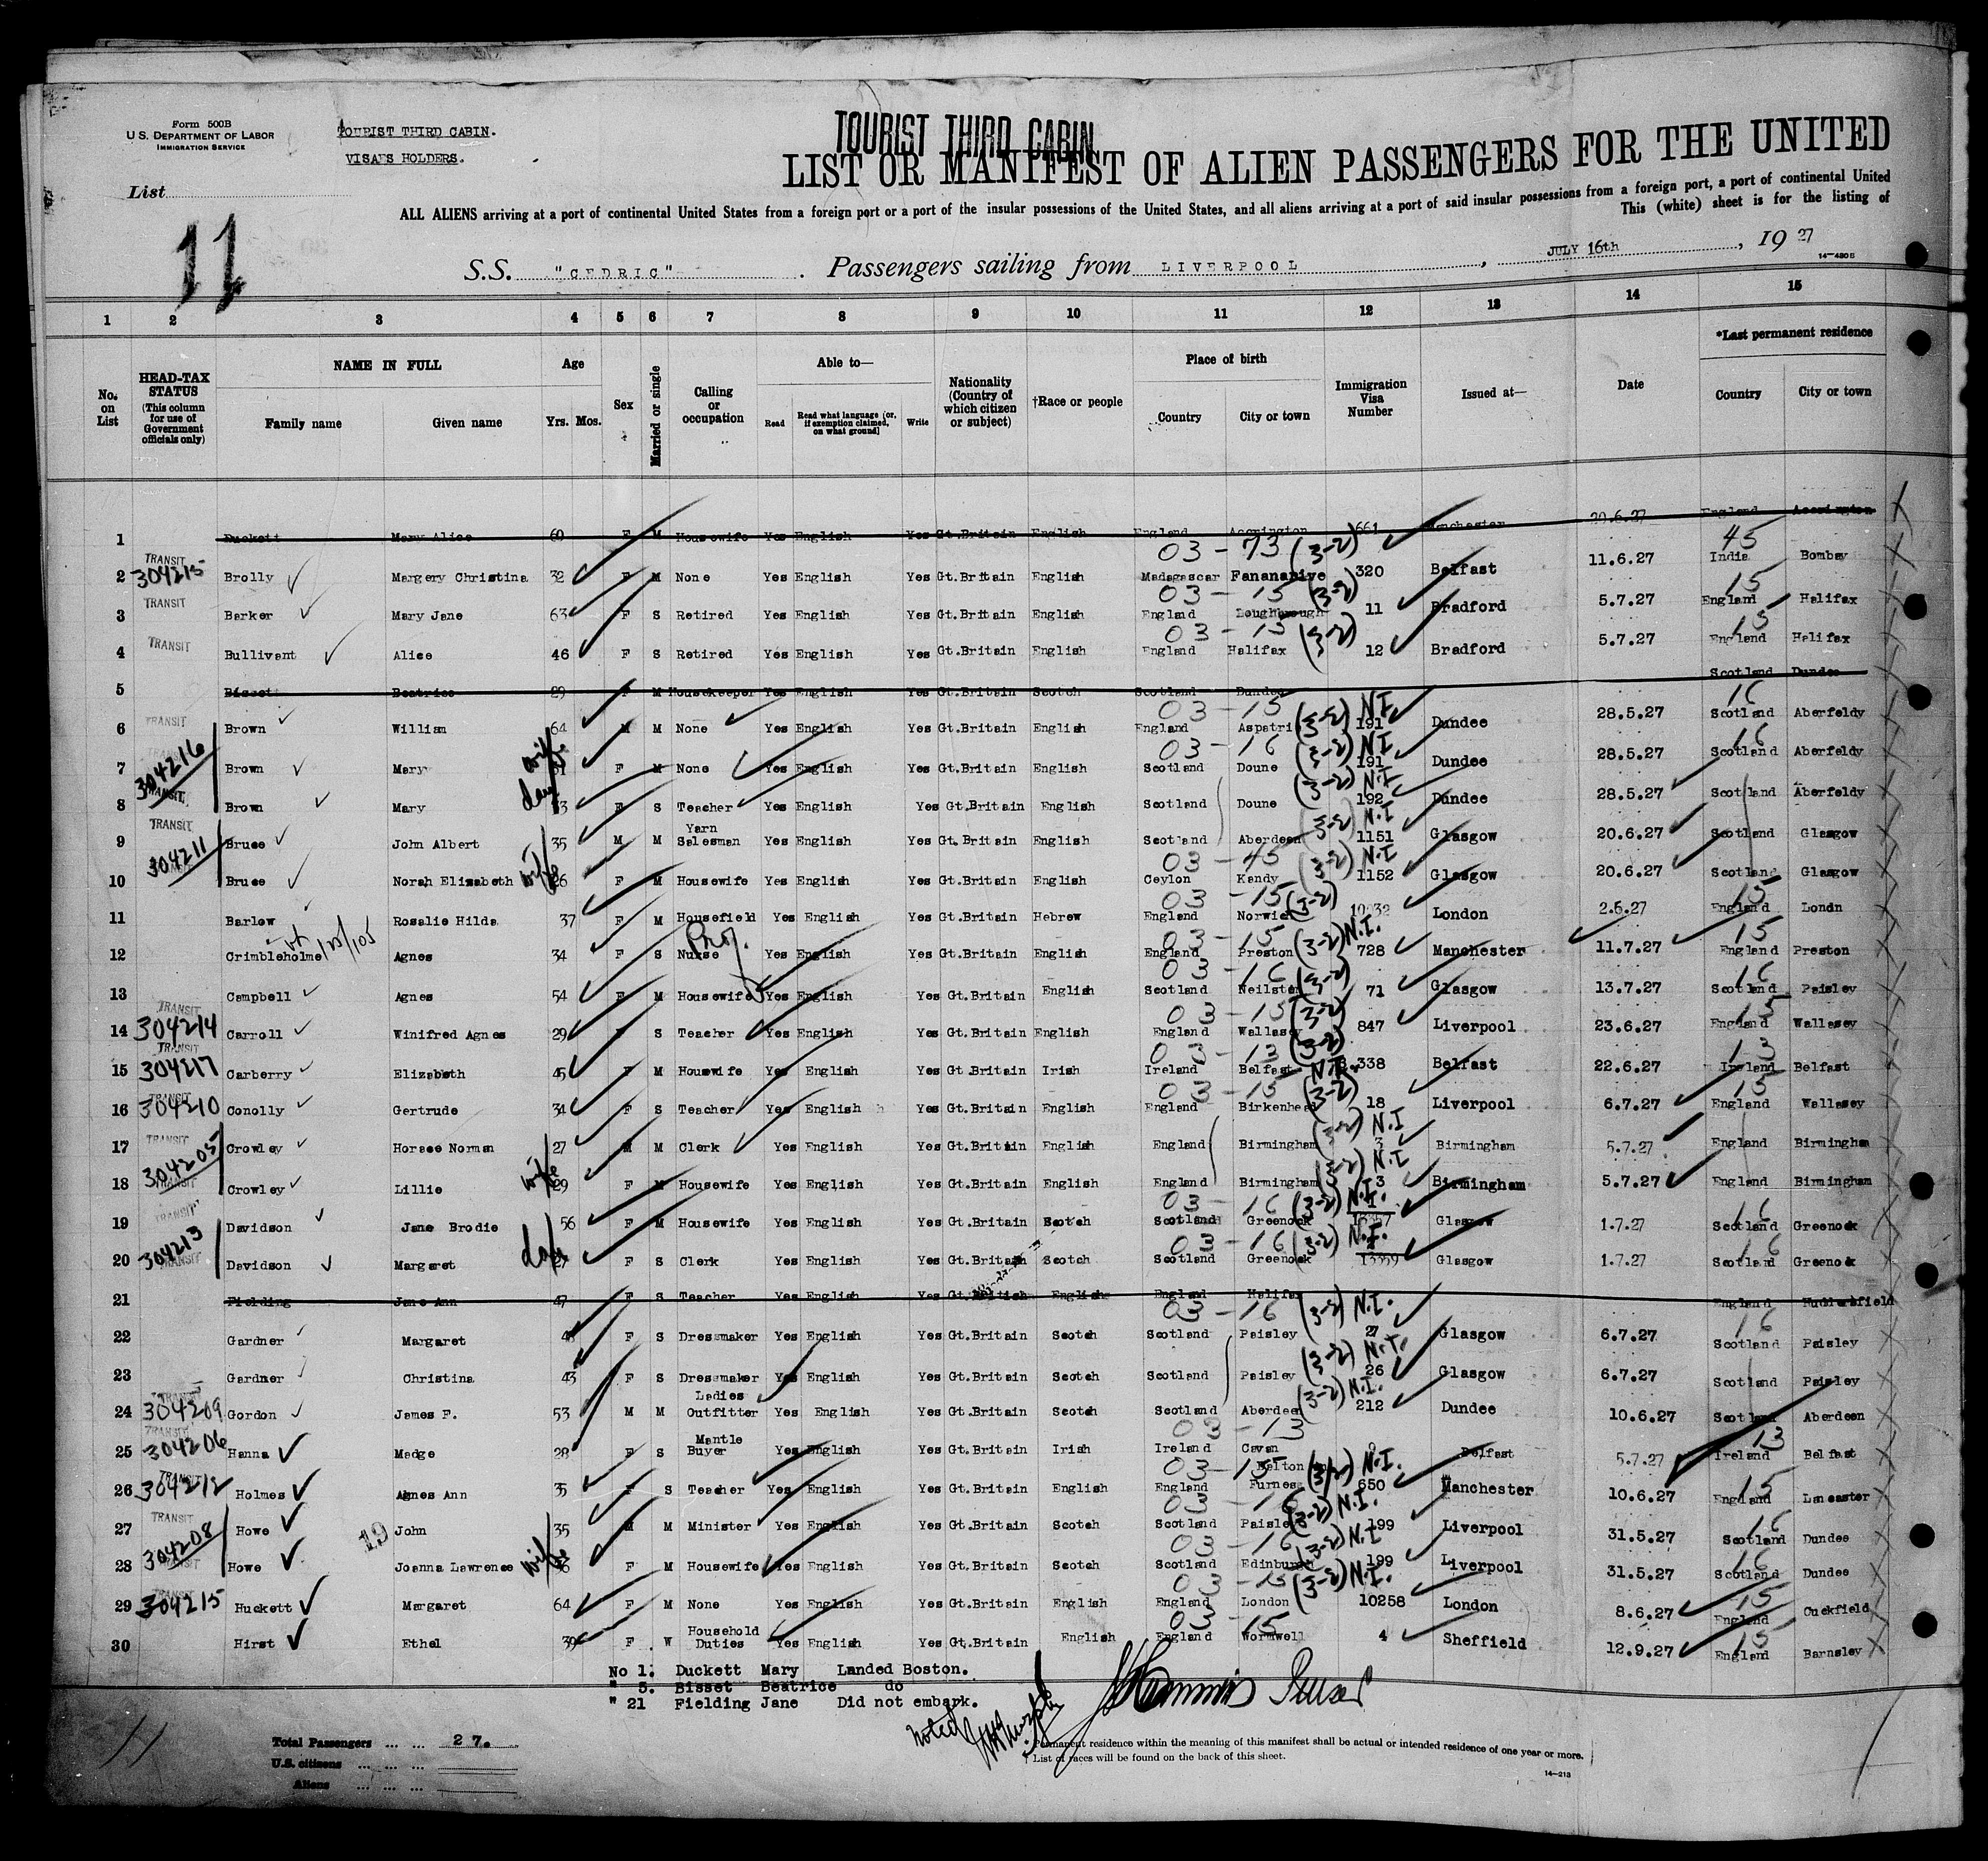 Form 500B
U.S. DEPARTMENT OF LABOR
IMMIGRATION SERVICE
TOURIST THIRD CABIN.
VISA'S HOLDERS.
TOURIST THIRD CABIN
List
11
LIST OR MANIFEST OF ALIEN PASSENGERS FOR THE UNITED
ALL ALIENS arriving at a port of continental United States from a foreign port or a port of the insular possessions of the United States, and all aliens arriving at a port of said insular possessions from a foreign port, a port of continental United
This (white) sheet is for the listing of
S.S. "CEDRIC" . Passengers sailing from LIVERPOOL , JULY 16th , 19 27
14-430 B
1 2 3 4 5 6 7 8 9 10 11 12 13 14 15
No. on List HEAD-TAX STATUS (This column for use of Government officials only) NAME IN FULL Family name Given name Age Yrs. Mos. Sex Married or single Calling or occupation Able to— Read Read what language [or, if exemption claimed, on what ground] Write Nationality (Country of which citizen or subject) †Race or people Place of birth Country City or town Immigration Visa Number Issued at— Date *Last permanent residence Country City or town
1 Duckett Mary Alice 60 F M Housewife Yes English Yes Gt.Britain English England Accrington 661 Manchester 20.6.27 England Accrington
2 TRANSIT 304215 Brolly Margery Christina 32 F M None Yes English Yes Gt.Britain English 03-73 (3-2) Madagascar 320 Belfast 11.6.27 45 India Bombay
3 TRANSIT Barker Mary Jane 63 F S Retired Yes English Yes Gt.Britain English 03-15 (3-2) England Loughbrough 11 Bradford 5.7.27 15 England Halifax
4 TRANSIT Bullivant Alice 46 F S Retired Yes English Yes Gt.Britain English 03-15 (3-2) England Halifax 12 Bradford 5.7.27 15 England Halifax
5 Bisset Beatrice 29 F M Housekeeper Yes English Yes Gt.Britain Scotch Scotland Dundee Scotland Dundee
6 TRANSIT Brown William 64 M M None Yes English Yes Gt.Britain English 03-15 (3-2) N I England Aspatri 191 Dundee 28.5.27 16 Scotland Aberfeldy
7 304216 Brown Mary wife F M None Yes English Yes Gt.Britain English 03-16 (3-2) N I Scotland Doune 191 Dundee 28.5.27 16 Scotland Aberfeldy
8 TRANSIT Brown Mary dau F S Teacher Yes English Yes Gt.Britain English (3-2) N.I Scotland Doune 192 Dundee 28.5.27 Scotland Aberfeldy
9 TRANSIT Bruce John Albert 35 M M Yarn Salesman Yes English Yes Gt.Britain English (3-2) N.I Scotland Aberdeen 1151 Glasgow 20.6.27 Scotland Glasgow
10 304211 Bruce Norah Elizabeth wife 26 F M Housewife Yes English Yes Gt.Britain English 03-45 (3-2) N.I Ceylon Kandy 1152 Glasgow 20.6.27 Scotland Glasgow
11 Barlow Rosalie Hilda 37 F M Housefield Yes English Yes Gt.Britain Hebrew 03-15 (3-2) England Norwich London 2.6.27 15 England Londn
12 Crimbleholme Agnes 34 F S Nurse Yes English Yes Gt.Britain English 03-15 (3-2) N.I. England Preston 728 Manchester 11.7.27 15 England Preston
13 Campbell Agnes 54 F M Housewife Yes English Yes Gt.Britain English 03-16 (3-2) Scotland Neilston 71 Glasgow 13.7.27 16 Scotland Paisley
14 TRANSIT 304214 Carroll Winifred Agnes 29 F S Teacher Yes English Yes Gt.Britain English 03-15 (3-2) England Wallasey 847 Liverpool 23.6.27 15 England Wallasey
15 TRANSIT 304217 Carberry Elizabeth 45 F M Housewife Yes English Yes Gt.Britain Irish 03-13 (3-2) Ireland Belfast 338 Belfast 22.6.27 13 Ireland Belfast
16 TRANSIT 304210 Conolly Gertrude 34 F S Teacher Yes English Yes Gt.Britain English 03-15 (3-2) England Birkenhead 18 Liverpool 6.7.27 15 England Wallasey
17 TRANSIT Crowley Horace Norman 27 M M Clerk Yes English Yes Gt.Britain English (3-2) N.I England Birmingham 3 Birmingham 5.7.27 England Birmingham
18 304205 TRANSIT Crowley Lillie wife 29 F M Housewife Yes English Yes Gt.Britain English (3-2) N.I England Birmingham 3 Birmingham 5.7.27 England Birmingham
19 TRANSIT Davidson Jane Brodie 56 F M Housewife Yes English Yes Gt.Britain Scotch 03-16 (3-2) N.I. Scotland Greenock Glasgow 1.7.27 16 Scotland Greenock
20 304213 TRANSIT Davidson Margaret 27 F S Clerk Yes English Yes Gt.Britain Scotch 03-16 (3-2) N.I. Scotland Greenock 13359 Glasgow 1.7.27 16 Scotland Greenock
21 Fielding Jane Ann 47 F S Teacher Yes English Yes Gt.British English England Halifax England Huddersfield
22 Gardner Margaret F S Dressmaker Yes English Yes Gt.Britain Scotch 03-16 (3-2) N.I. Scotland Paisley 27 Glasgow 6.7.27 16 Scotland Paisley
23 Gardner Christina 43 F S Dressmaker Yes English Yes Gt.Britain Scotch (3-2) N.I. Scotland Paisley 26 Glasgow 6.7.27 Scotland Paisley
24 TRANSIT 304209 Gordon James F. 53 M M Ladies Outfitter Yes English Yes Gt.Britain Scotch (3-2) N.I. Scotland Aberdeen 212 Dundee 10.6.27 Scotland Aberdeen
25 TRANSIT 304206 Hanna Madge 28 F S Mantle Buyer Yes English Yes Gt.Britain Irish 03-13 Ireland Cavan Belfast 5.7.27 13 Ireland Belfast
26 TRANSIT 304212 Holmes Agnes Ann 35 F S Teacher Yes English Yes Gt.Britain English 03-15 (3-2) N.I. England Dalton Furness 650 Manchester 10.6.27 15 England Lancaster
27 TRANSIT Howe 19 John 35 M M Minister Yes English Yes Gt.Britain Scotch 03-16 (3-2) N.I. Scotland Paisley 199 Liverpool 31.5.27 16 Scotland Dundee
28 304208 TRANSIT Howe Joanna Lawrence wife F M Housewife Yes English Yes Gt.Britain Scotch 03-16 (3-2) N.I Scotland Edinburgh 199 Liverpool 31.5.27 16 Scotland Dundee
29 TRANSIT 304215 Huckett Margaret 64 F M None Yes English Yes Gt.Britain English 03-15 (3-2) N.I. England London 10258 London 8.6.27 15 England Cuckfield
30 Hirst Ethel 39 F W Household Duties Yes English Yes Gt.Britain English 03 15 England Wormwell 4 Sheffield 12.9.27 15 England Barnsley
No 1. Duckett Mary Landed Boston.
" 5. Bisset Beatrice do
" 21 Fielding Jane Did not embark.
noted
Total Passengers ... ... 27.
U.S. citizens ... ... ...
Aliens ... ... ...
11
*Permanent residence within the meaning of this manifest shall be actual or intended residence of one year or more.
† List of races will be found on the back of this sheet.
14-213